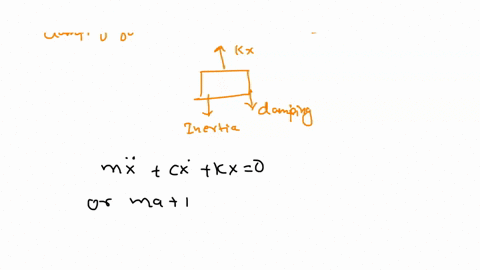 Kx
damping
Inertia
mẍ + cẋ + Kx = 0
or ma + 1